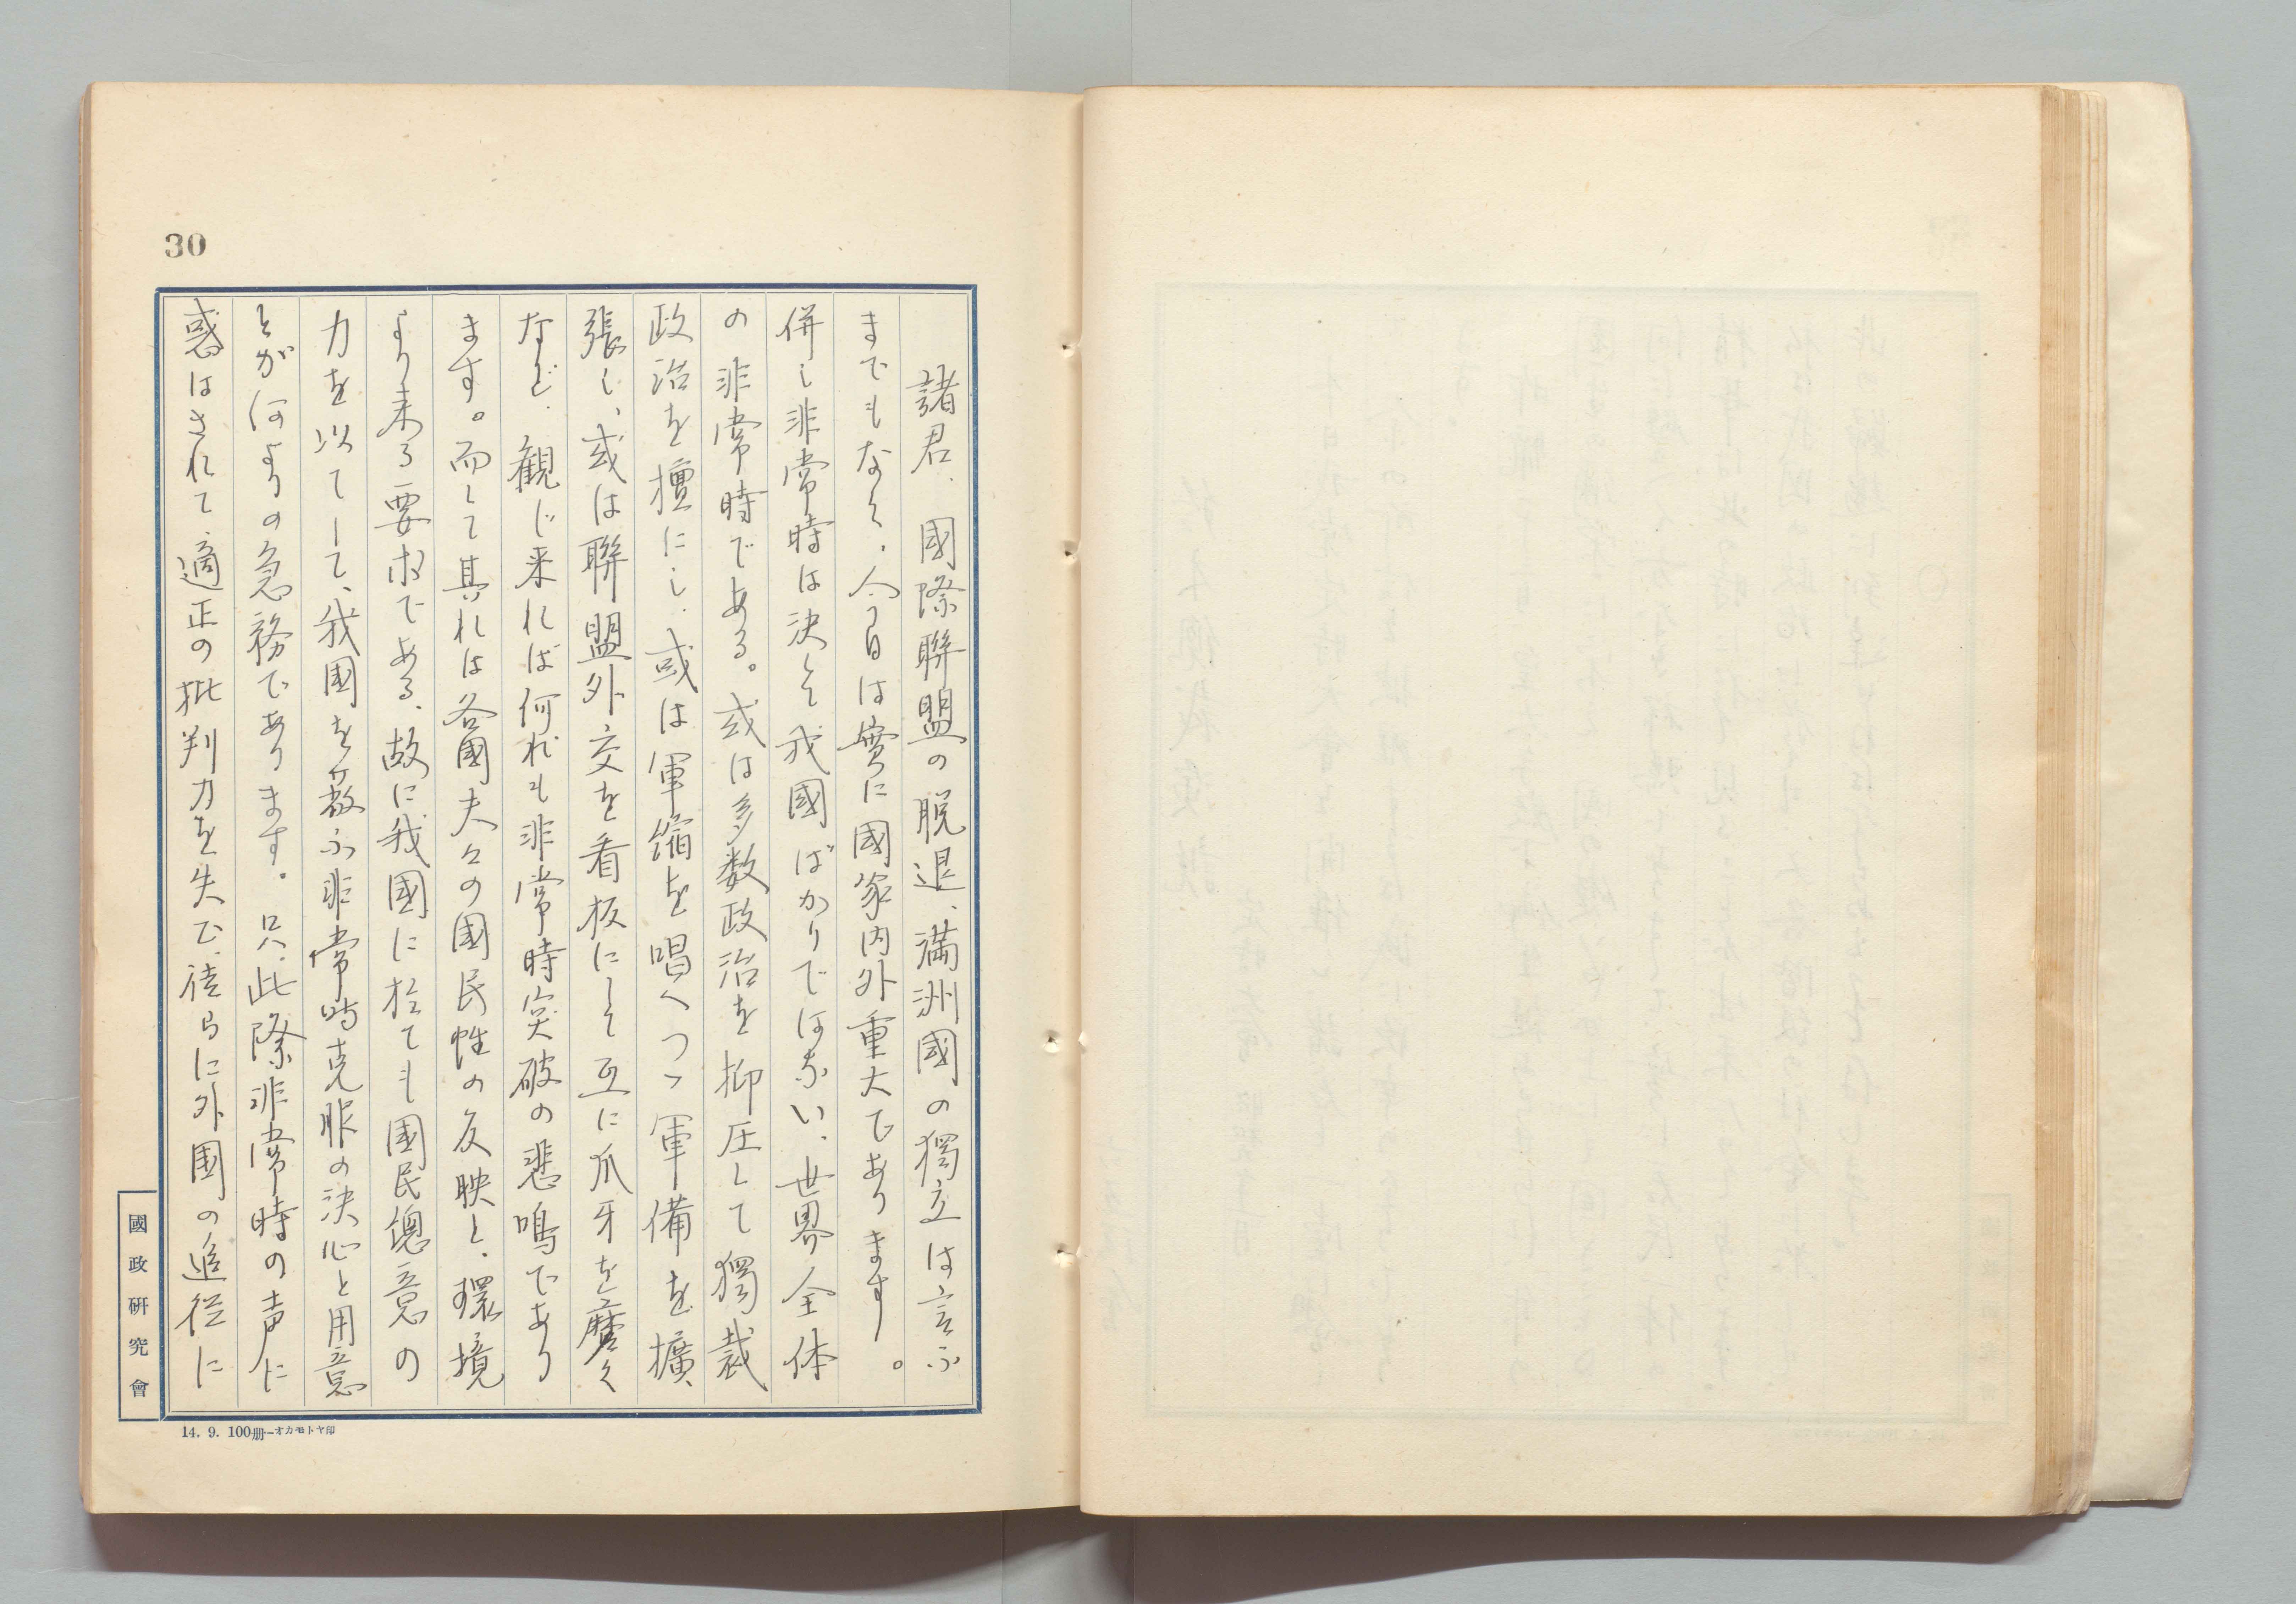 30
諸君、國際聯盟の脱退、満洲國の獨立は言ふ
までもなく、今日は實に國家内外重大であります。
併し非常時は決して我國ばかりではない、世界全体
の非常時である。或は多数政治を抑圧して獨裁
政治を擅にし、或は軍縮を唱へつゝ軍備を擴
張し、或は聯盟外交を看板にして互に爪牙を磨く
など、観じ来れば何れも非常時突破の悲鳴であり
ます。而して其れは各國夫々の國民性の反映と、環境
より来る要求である、故に我國に於ても國民總意の
力を以てして、我国を蔽ふ非常時克服の決心と用意
とが何よりの急務であります。只、此際非常時の声に
惑はされて、適正の批判力を失ひ、徒らに外国の追従に
國政研究會
14. 9. 100册―オカモトヤ印